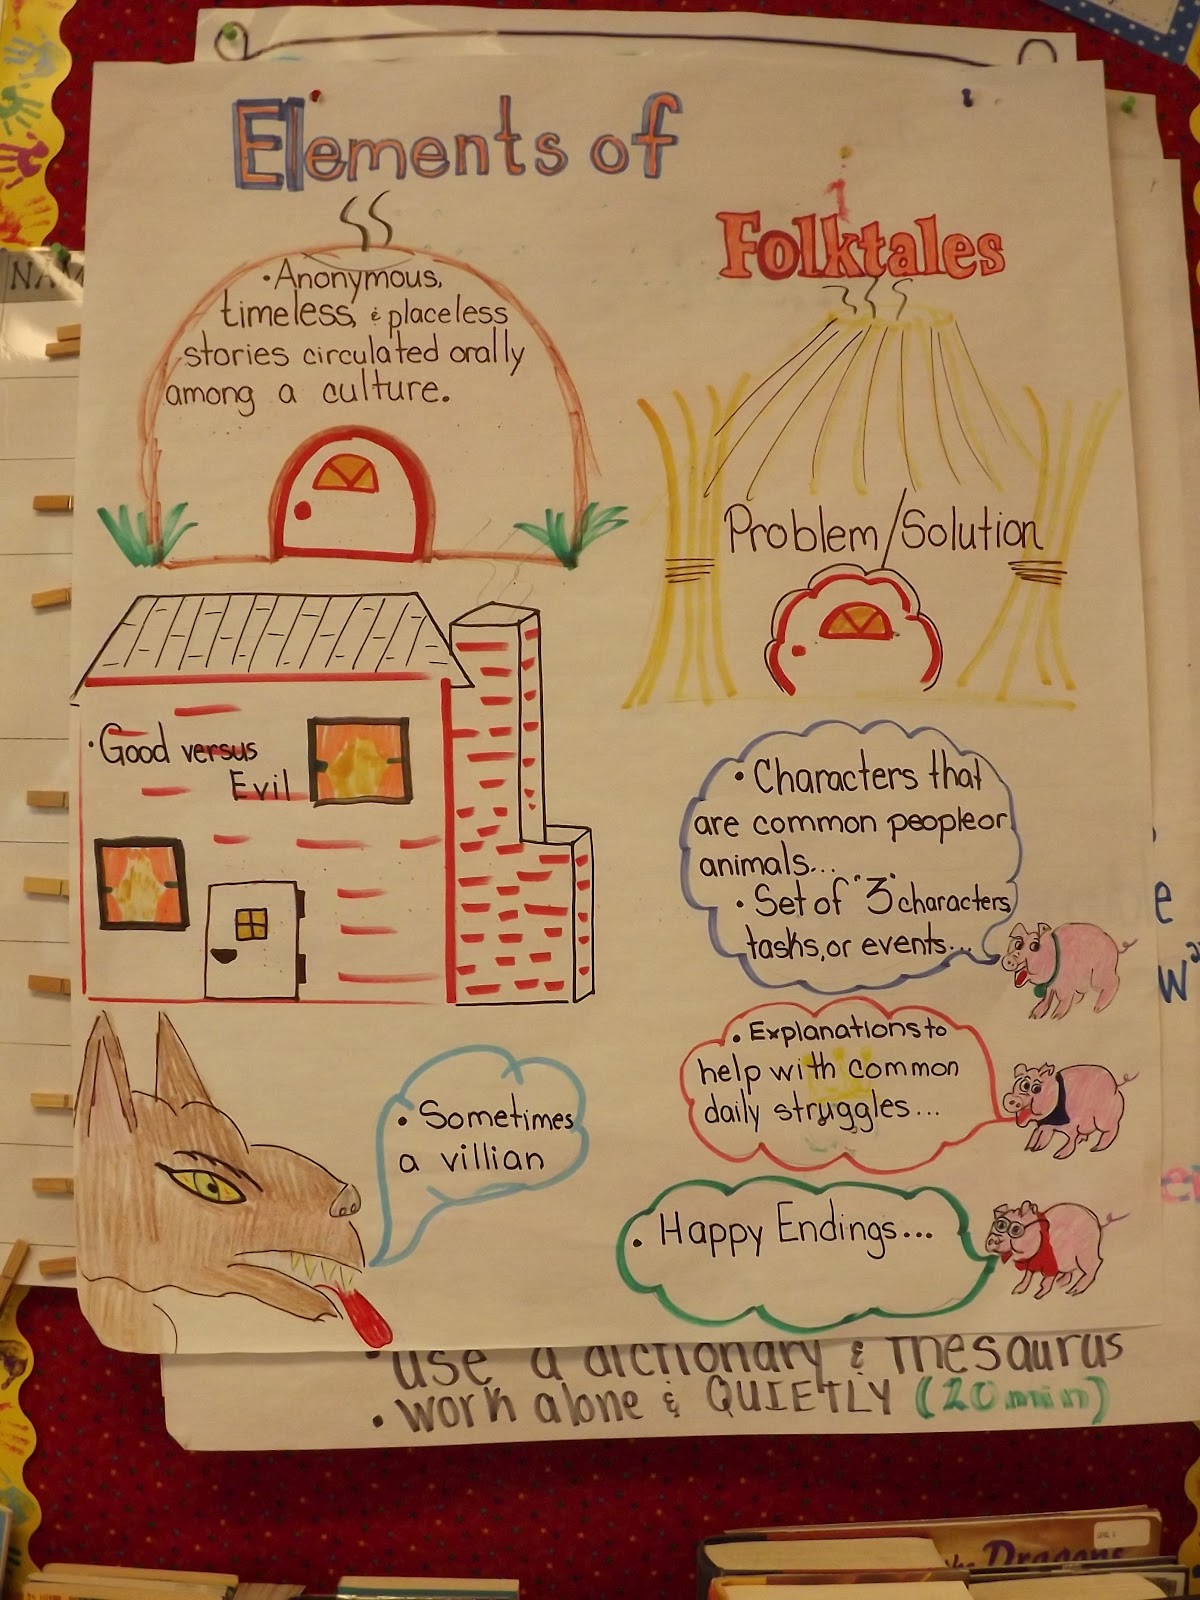 Elements of
Folktales
• Anonymous,
timeless, & placeless
stories circulated orally
among a culture.
Problem/Solution
• Good versus
Evil
• Characters that
are common people or
animals...
• Set of "3" characters,
tasks, or events...
• Explanations to
help with common
daily struggles...
• Sometimes
a villian
• Happy Endings...
• use a dictionary & thesaurus
• work alone & QUIETLY (20 min)
the Dragons